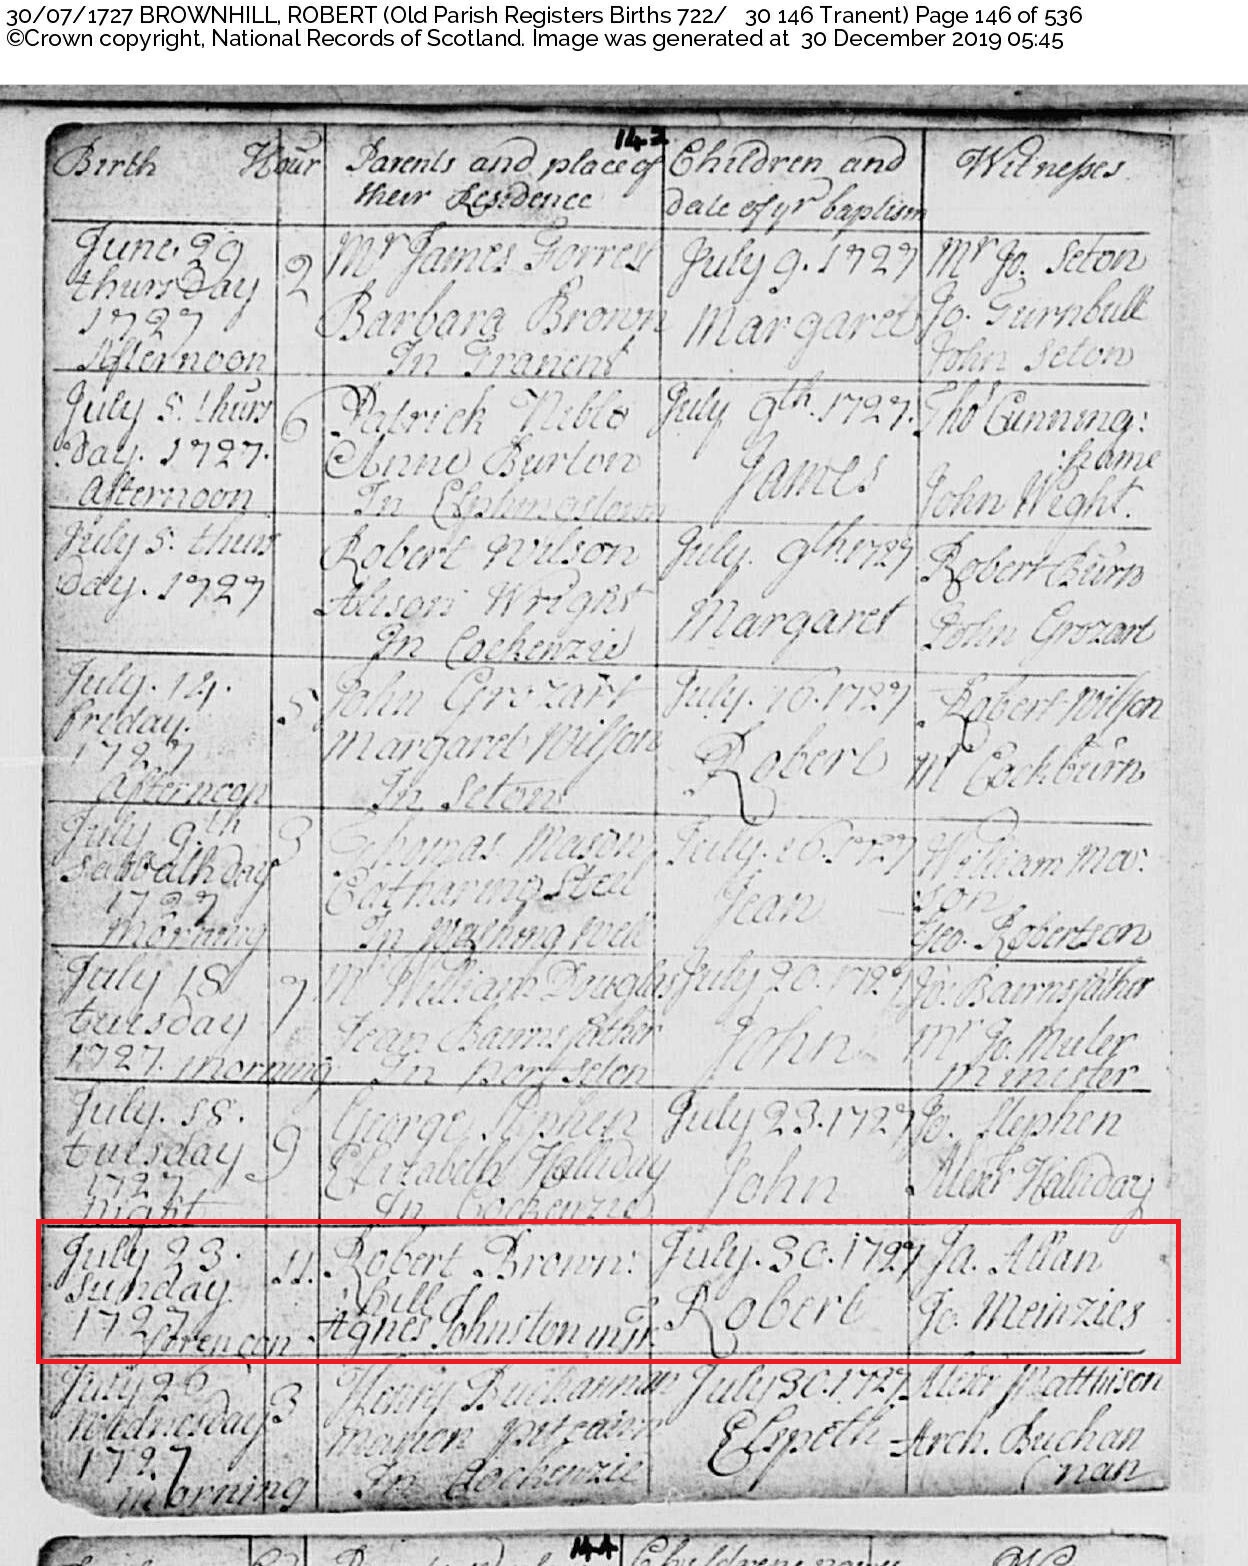 30/07/1727 BROWNHILL, ROBERT (Old Parish Registers Births 722/ 30 146 Tranent) Page 146 of 536
©Crown copyright, National Records of Scotland. Image was generated at 30 December 2019 05:45
143
Birth Hour Parents and place of their Residence Children and date of yr baptism Witnesses
June 29
thursday
1727
Afternoon
2
Mr James Forrest
Barbara Brown
In Tranent
July 9. 1727
Margaret
Mr Jo. Seton
Jo. Turnbull
John Seton
July 5. thurs
day. 1727.
Afternoon
6
Patrick Neblo
Anne Burton
In Elphinstown
July 9th. 1727.
James
Tho Cunning:
:hame
John Wight.
July 5. thurs
day. 1727
Robert Wilson
Alison Wright
In Cockenzie
July. 9th. 1727
Margaret
Robert Burn
John Crozart
July. 14.
friday.
1727
Afternoon
5
John Crozart
Margaret Wilson
In Seton
July. 16. 1727
Robert
Robert Wilson
Mr Cockburn
July 9th
Sabbathday
1727
Morning
3
Thomas Mason
Catharine Steel
In Meshing Well
July. 16. 1727
Jean
William Ma:
son
Geo. Robertson
July 18
tuesday
1727. morning
7
Mr William Douglas
Jean Bairnsfather
In Port Seton
July 20. 1727
John
Jo. Bairnsfather
Mr Jo. Muler
Minester
July. 18.
tuesday
1727
night
9
George Stephen
Elizabeth Halliday
In Cockenzie
July 23. 1727
John
Jo. Stephen
Alexr Halliday
July 23.
Sunday.
1727
forenoon
11.
Robert Brown:
hill
Agnes Johnston in Tr.
July. 30. 1727
Robert
Ja. Allan
Jo. Meinzies
July 26
Wednesday
1727
morning
3
Henry Buchannan
Marion Pitcairn
In Cockenzie
July 30. 1727
Elspeth
Alexr Matthison
Arch. Buchan
nan
144